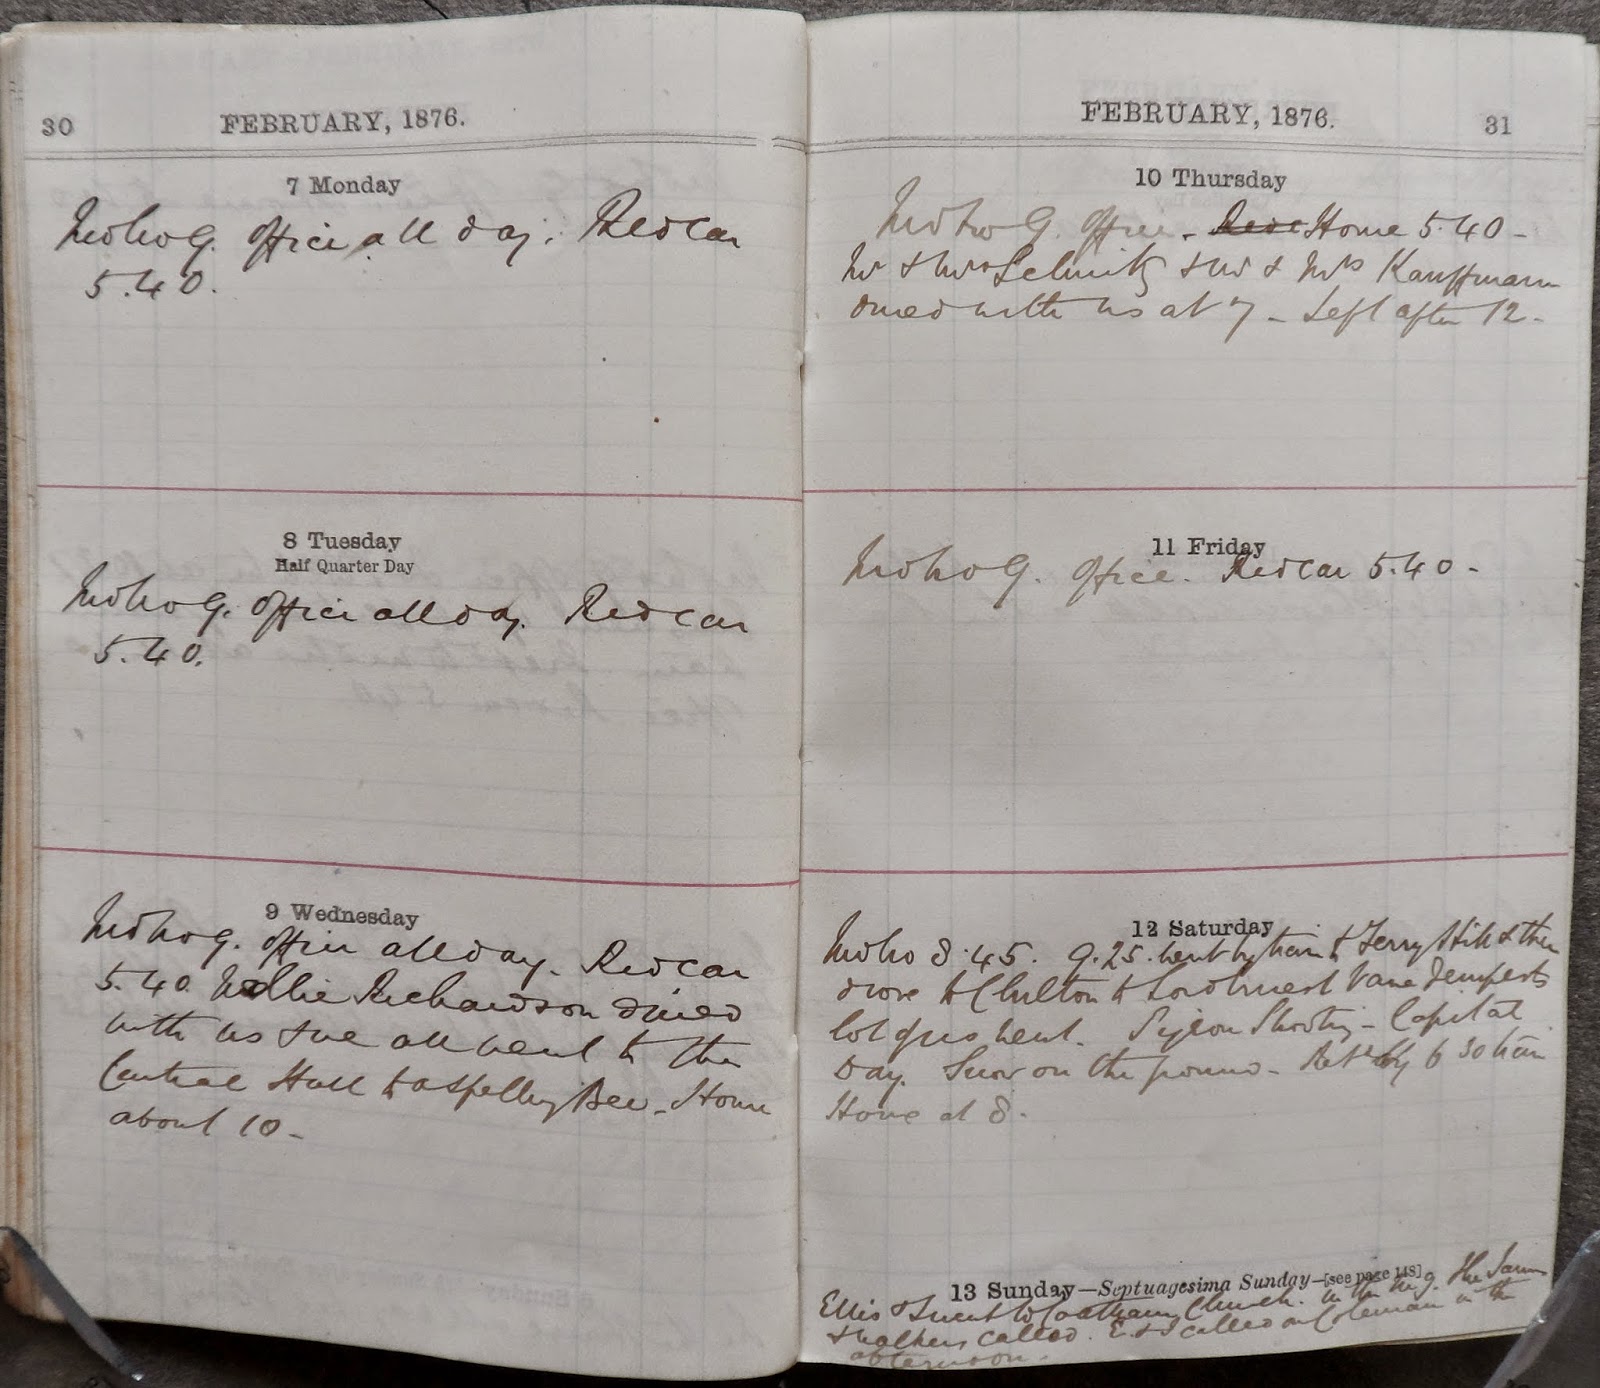 30
FEBRUARY, 1876.
7 Monday
Mdbro 9. Office all day. Redcar
5.40.
8 Tuesday
Half Quarter Day
Mdbro 9. Office all day. Redcar
5.40.
9 Wednesday
Mdbro 9. Office all day. Redcar
5.40. Nellie Richardson dined
with us & we all went to the
Central Hall to a Spelling Bee. Home
about 10 -
FEBRUARY, 1876.
31
10 Thursday
Mdbro 9. Office. Home 5.40 -
Mr & Mrs Schmitz & Mr & Mrs Kauffmann
dined with us at 7 - Left after 12 -
11 Friday
Mdbro 9. Office. Redcar 5.40 -
12 Saturday
Mdbro 8.45. 9.25 went by train to Ferry Hill & then
drove to Chilton to Lord Ernest Vane Tempests
lot of us went. Pigeon Shooting - Capital
Day. Snow on the ground - by 6 30 train
Home at 8 -
13 Sunday—Septuagesima Sunday—[see page 148]
Ellis & I went to Coatham Church in the mg. The
& Walkers called. E. & I called on Coleman in the
afternoon.